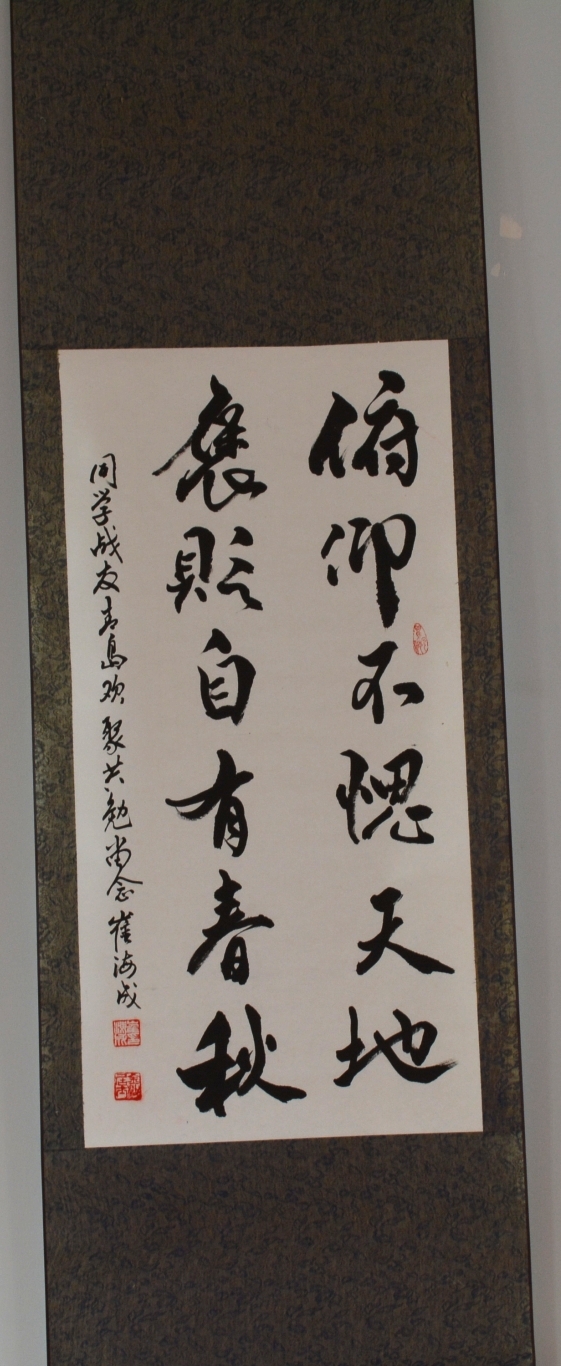 俯仰不愧天地
褒贬自有春秋
同学战友青岛欢聚共勉尚念崔海成